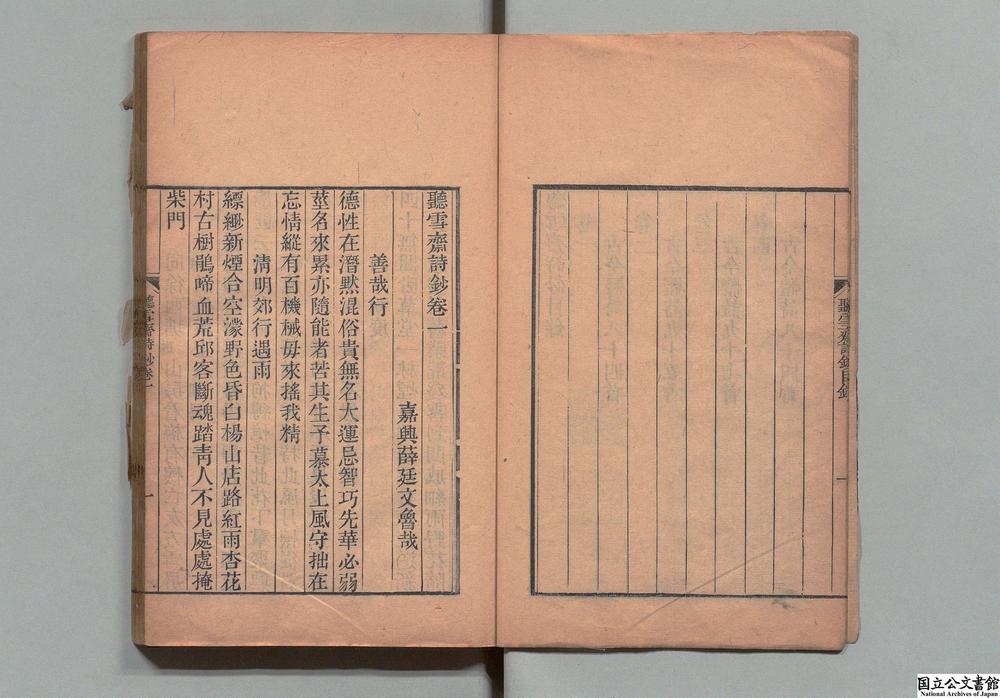 聽雪齋詩鈔目錄
聽雪齋詩鈔卷一
嘉興薛廷文魯哉
善哉行
德性在潛默混俗貴無名大運忌智巧先華必弱
莖名來累亦隨能者苦其生予慕太上風守拙在
忘情縱有百機械毋來搖我精
淸明郊行遇雨
縹緲新煙合空濛野色昏白楊山店路紅雨杏花
村古樹鵑啼血荒邱客斷魂踏靑人不見處處掩
柴門
聽雪齋詩鈔卷一
一
国立公文書館
National Archives of Japan